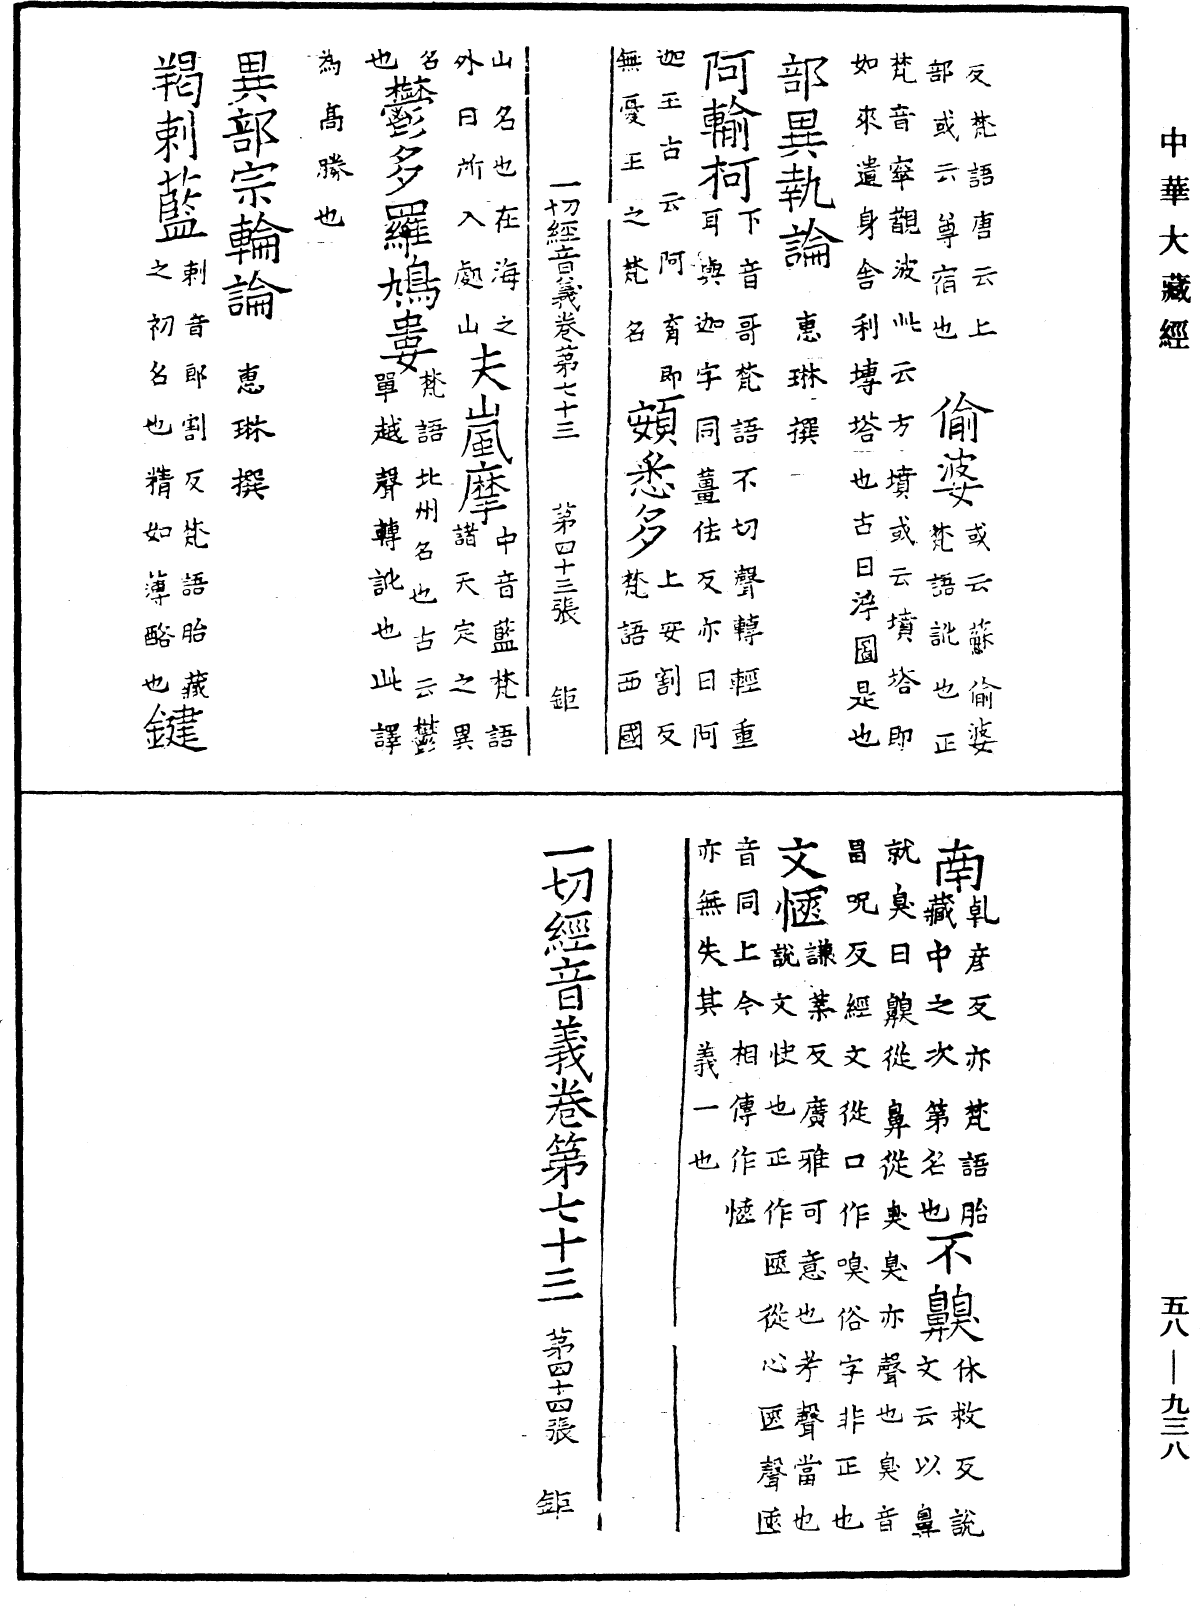 中華大藏經
反梵語唐云上
部或云尊宿也
偷婆
或云蘇偷婆
梵語訛也正
梵音窣覩波此云方墳或云墳塔即
如來遺身舍利塼塔也古曰浮圖是也
部異執論 惠琳撰
阿輸柯
下音哥梵語不切聲轉輕重
耳與迦字同薑佉反亦曰阿
迦王古云阿育即
無憂王之梵名
頞悉多
上安割反
梵語西國
一切經音義卷第七十三 第四十三張 鉅
山名也在海之
外日所入處山
夫嵐摩
中音藍梵語
諸天定之異
名
也
鬱多羅鳩婁
梵語北州名也古云鬱
單越聲轉訛也此譯
為高勝也
異部宗輪論 惠琳撰
羯剌藍
剌音郎割反梵語胎藏
之初名也精如薄酪也
鍵
南
乹彦反亦梵語胎
藏中之次第名也
不齅
休救反說
文云以鼻
就臭曰齅從鼻從臭臭亦聲也臭音
昌呪反經文從口作嗅俗字非正也
文㥦
謙葉反廣雅可意也考聲當也
說文快也正作匧從心匧聲匧
音同上今相傳作愜
亦無失其義一也
一切經音義卷第七十三 第四十四張 鉅
五八—九三八